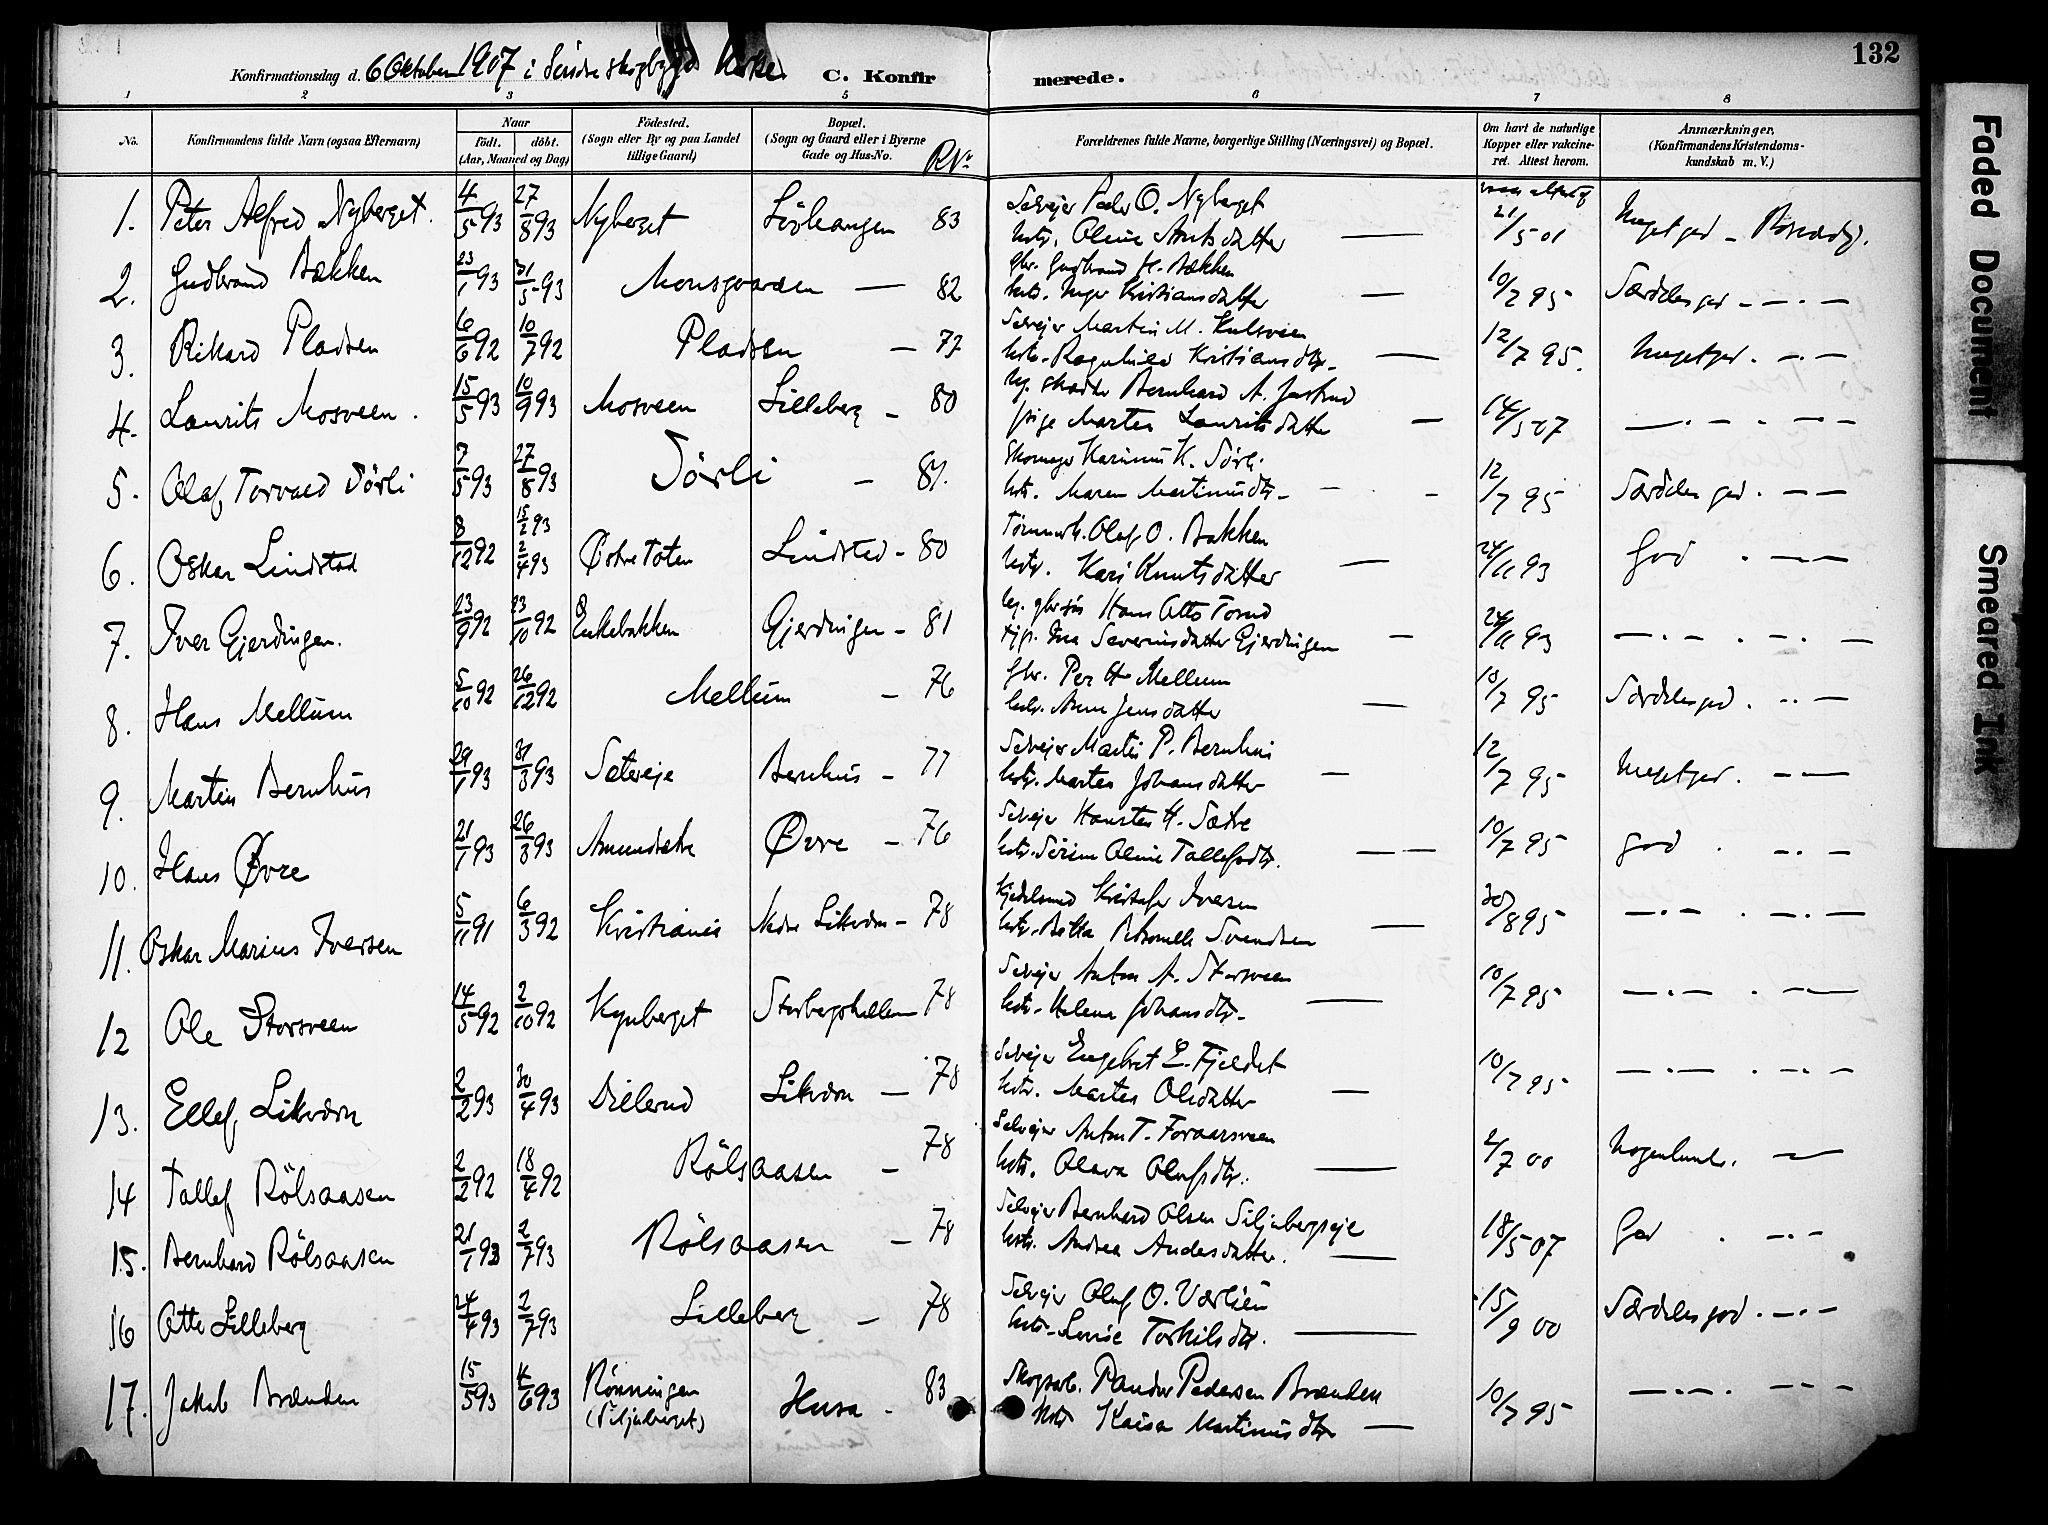 132
Konfirmationsdag d. 6 Oktober 1907 i Søndre Skogbygd Kirke. C. Konfirmerede.
1 2 3 4 5 6 7 8
No. Konfirmandens fulde Navn (ogsaa Efternavn) Naar født. døbt. (Aar, Maaned og Dag) Fødested. (Sogn eller By og paa Landet tillige Gaard) Bopæl. (Sogn og Gaard eller i Byerne Gade og Hus-No. Forældrenes fulde Navne, borgerlige Stilling (Næringsvei) og Bopæl. Om havt de naturlige Kopper eller vakcineret. Attest herom. Anmærkninger. (Konfirmandens Kristendomskundskab m. V.)
1. Peter Alfred Nyberget. 4/5 93 27/8 93 Nyberget 83 Selvejer Peder O. Nyberget
Oline 21/5 01 Meget god
2. Gudbrand Bækken 23/1 93 31/5 93 Monsgaarden — 82 Gbr. Gudbrand H. Bækken
Inger Kristiansdatter — 10/7 95 Særdeles god
3. Rikard Pladsen 6/6 92 10/7 92 Pladsen — 77 Selvejer Martin M.
Kristiansdtr. — 12/7 95. Meget god
4. Laurits Mosveen. 15/5 93 10/9 93 Mosveen Lilleberg — 80 Bernhard A.
pige Marten Lauritsdatter — 14/5 07 — . — . — . —
5. Olaf Torvald Sörli 7/5 93 27/8 93 Sörli — 81. Skomager Karinus K. Sörli
Maren Martinusdtr. — 12/7 95 Særdeles god. — —
6. Oskar Lindstad 8/12 92 15/2 93 2/4 93 Østre Toten Lindstad — 80 Olaf O. Bakken
Kari Knutsdatter — 24/11 93 God . — —
7. Iver Gjerdingen. 23/9 92 23/10 92 Enkebakken Gjerdingen — 81 Hans Otto
Ina Severinsdatter Gjerdingen — 24/11 93 — . — . — . —
8. Hans Mellum 5/10 92 26/12 92 Mellum — 76 Gbr. Per H. Mellum
Anne Jensdatter — 10/7 95 Særdeles god
9. Martin Bernhus 29/1 93 31/3 93 Sætereje Bernhus — 77 Selvejer Martin P. Bernhus
Marten Johansdatter — 12/7 95 Meget god. — —
10. Hans Øvre 21/1 93 26/3 93 Amundsætre Øvre — 76 Selvejer H. Sætre
Oline Tollefsdtr. — 10/7 95 God . — . —
11. Oskar Marius Iversen 5/11 91 6/3 92 Kristiania Nedre Likværn — 78 Kjedelsmed Kristofer Iversen
Svendsen — 30/8 95 — . — . — . —
12 Ole Storsveen 14/5 92 2/10 92 Kynberget 78 Selvejer Anton A. Storsveen
Helene Johansdtr. — 10/7 95 — . — . — —
13. Ellef Likværn 2/2 93 30/4 93 Dillerud Likværn — 78 Selvejer Engebret E. Fjeldet
Marten Olsdatter — 10/7 95 — . — . — . —
14 Tollef Rölsaasen 2/2 92 18/4 92 Rölsaasen — 78 Selvejer Anton T.
Olava Olufsdtr. — 2/7 00 Nogenlunde. —
15. Bernhard Rölsaasen 21/1 93 2/7 93 Rölsaasen — 78 Selvejer Bernhard Olsen Siljubergseje
Andrea Andersdatter. — 18/5 07 God . — . —
16 Otto Lilleberg 24/4 93 2/7 93 Lilleberg — 78 Selvejer Oluf O. Værlien
Torkilsdtr. — 15/9 00 Særdeles god . — . —
17. Jakob Brænden 15/5 93 4/6 93 Rønningen (Siljuberget) Husa — 83 Skogsarb. Pedersen Brænden
Kaisa Martinusdtr — 10/7 95 — . — . — — —
Faded Document
Smeared Ink